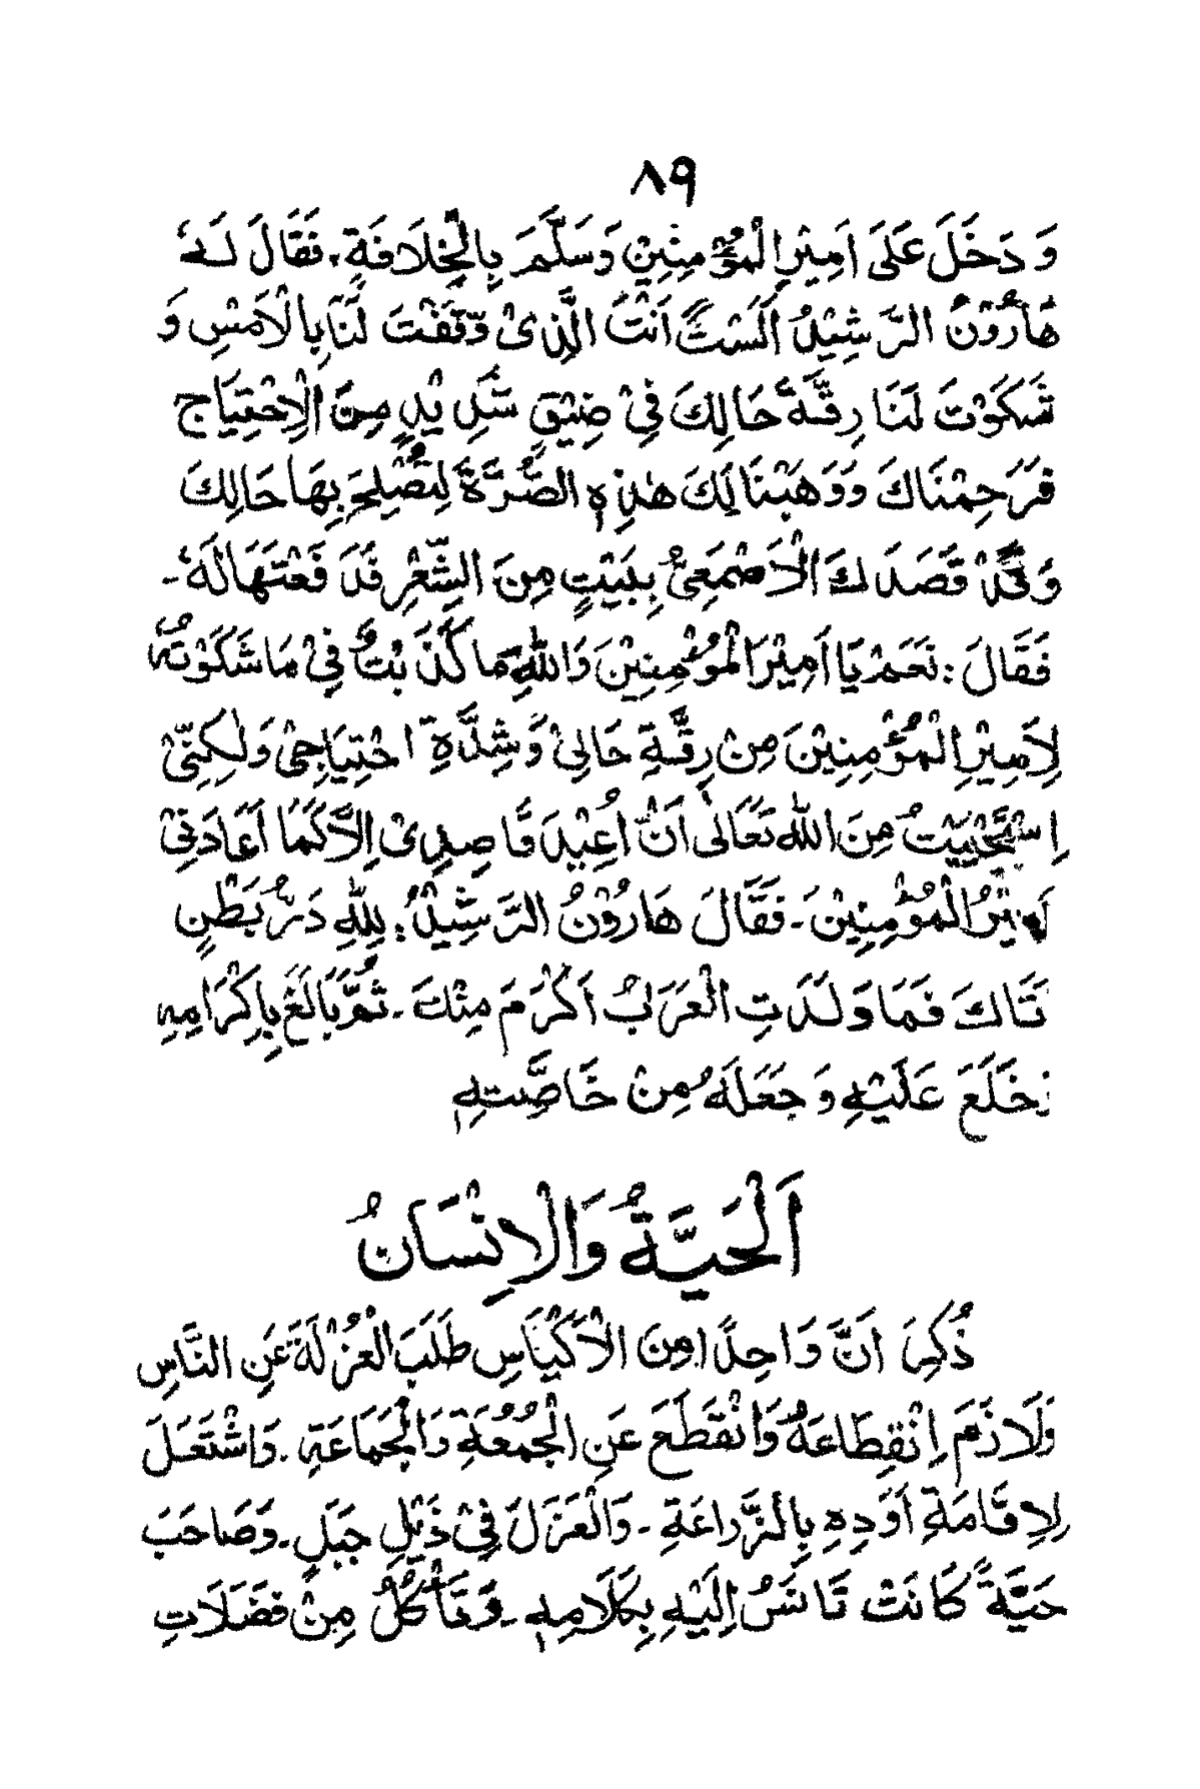 ٨٩
وَ دَخَلَ عَلَىَ اَمِيْرِ الْمُؤْمِنِيْنَ وَسَلَّمَ بِالْخِلَافَةِ. فَقَالَ لَهٗ
هَارُوْنُ الرَّشِيْدُ اَلَسْتَ اَنْتَ الَّذِىْ وَقَفْتَ لَنَا بِالْاَمْسِ وَ
شَكَوْتَ لَنَا رِقَّةَ حَالِكَ فِىْ ضِيْقٍ شَدِيْدٍ مِنَ الْاِحْتِيَاجِ
فَرَحِمْنَاكَ وَوَهَبْنَا لَكَ هٰذِهِ الصُّرَّةَ لِتُصْلِحَ بِهَا حَالِكَ
وَقَدْ قَصَدَكَ الْاَصْمَعِىُّ بِبَيْتٍ مِنَ الشِّعْرِ فَدَفَعْتَهَا لَهٗ۔
فَقَالَ: نَعَمْ يَا اَمِيْرَ الْمُؤْمِنِيْنَ وَاللّٰهِ مَا كَذَبْتُ فِىْ مَا شَكَوْتُهُ
لِاَمِيْرِ الْمُؤْمِنِيْنَ مِنْ رِقَّةِ حَالِىْ وَشِدَّةِ احْتِيَاجِىْ وَلٰكِنِّىْ
اِسْتَحْيَيْتُ مِنَ اللّٰهِ تَعَالٰى اَنْ اُعِيْدَ قَاصِدِىْ اِلَّا كَمَا اَعَادَنِىْ
اَمِيْرُ الْمُؤْمِنِيْنَ۔ فَقَالَ هَارُوْنُ الرَّشِيْدُ: لِلّٰهِ دَرُّ بَطْنٍ
تَاكَ فَمَا وَلَدَتِ الْعَرَبُ اَكْرَمَ مِنْكَ۔ ثُمَّ بَالَغَ بِاِكْرَامِهِ
خَلَعَ عَلَيْهِ وَجَعَلَهُ مِنْ خَاصَّتِهٖ
اَلْحَيَّةُ وَالْاِنْسَانُ
ذُكِرَ اَنَّ وَاحِدًا مِنَ الْاَكْيَاسِ طَلَبَ الْعُزْلَةَ عَنِ النَّاسِ
وَلَاذَمَ اِنْقِطَاعَهُ وَانْقَطَعَ عَنِ الْجُمُعَةِ وَالْجَمَاعَةِ۔ وَاشْتَعَلَ
لِاِقَامَةِ اَوَدِهِ بِالزَّرَاعَةِ۔ وَالْعَزَلَ فِىْ ذَيْلِ جَبَلٍ۔ وَصَاحَبَ
حَيَّةً كَانَتْ تَانَسُ اِلَيْهِ بِكَلَامِهٖ۔ وَتَأْكُلُ مِنْ فَضَلَاتِ